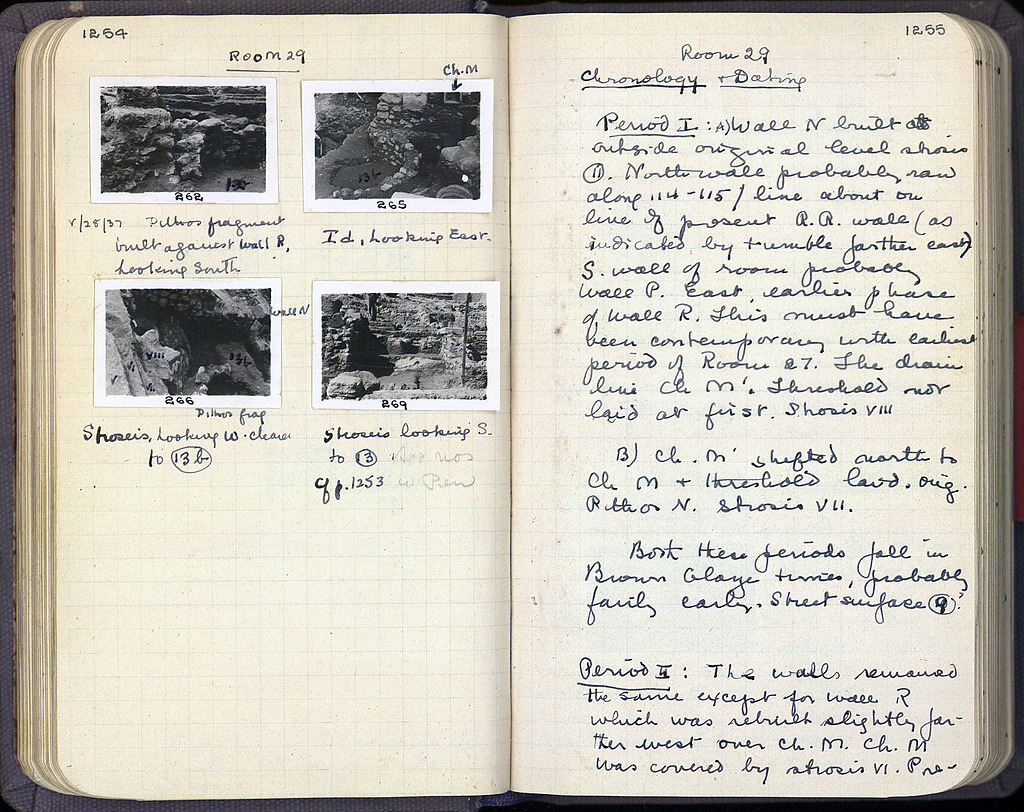 1254
Room 29
Ch. M
262
265
V/28/37 Pithos fragment
built against wall R,
Looking South
Id, Looking East.
13b
wall N
VIII
V
VI
266
269
Pithos frag
Stroseis, Looking W. cleared
to 13b
Stroseis looking S.
to 13
Cf p. 1253
1255
Room 29
Chronology + Dating
Period I : A) Wall N built at
outside original level strosis
11. North wall probably ran
along 114-115/ line about on
line of present R.R. wall (as
indicated by tumble farther east)
S. wall of room probably
wall P. East, earlier phase
of wall R. This must have
been contemporary with earliest
period of Room 27. The drain
line Ch M'. Threshold not
laid at first. Strosis VIII
B) Ch. M' shifted north to
Ch M + threshold laid. orig.
Pithos N. Strosis VII.
Both these periods fall in
Brown Glaze times, probably
fairly early. Street surface 9?
Period II : The walls remained
the same except for wall R
which was rebuilt slightly far-
ther west over Ch. M. Ch. M
was covered by strosis VI. Pre-